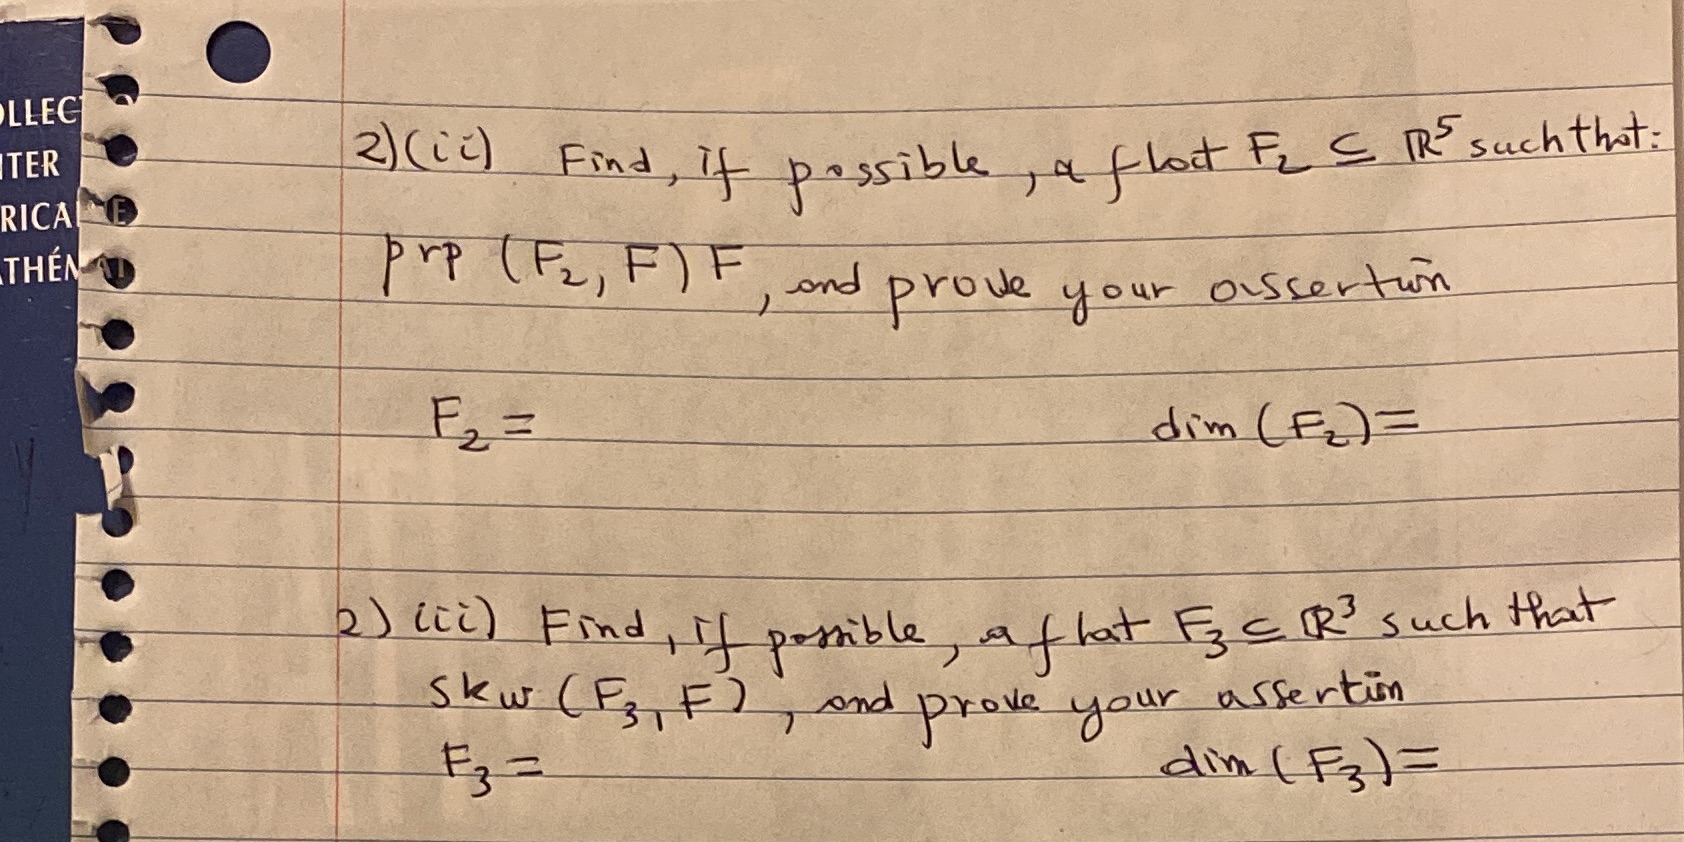 OLLEC
NTER
RICA
ATHÉM
2)(ii) Find, if possible, a flat F₂ ⊆ ℝ⁵ such that:
prp (F₂, F) F, and prove your assertion
F₂ = dim (F₂) =
2) (ii) Find, if possible, a flat F₃ ⊆ ℝ³ such that
skw (F₃, F), and prove your assertion
F₃ = dim (F₃) =